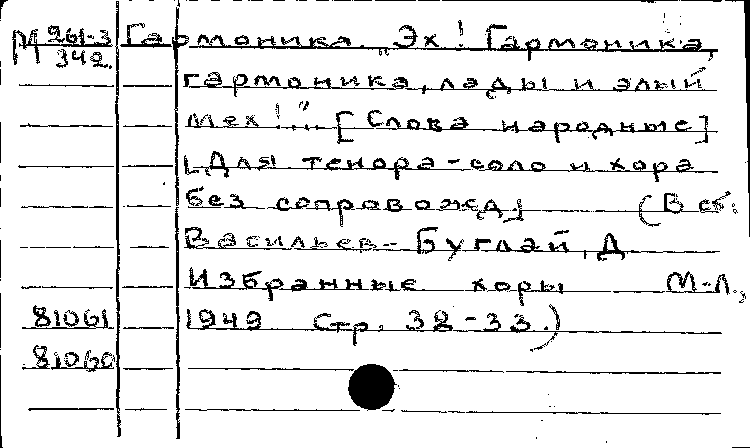 М 261-3 Гармоника. „Эх! Гармоника,
342.
гармоника, лады и алый
мех!..." [Слова народные]
[Для тенора-соло и хора
без сопровожд] (В сб:
Васильев-Буглай, Д
Избранные хоры М-Л.,
81061 1949 Стр. 32-33.)
81060